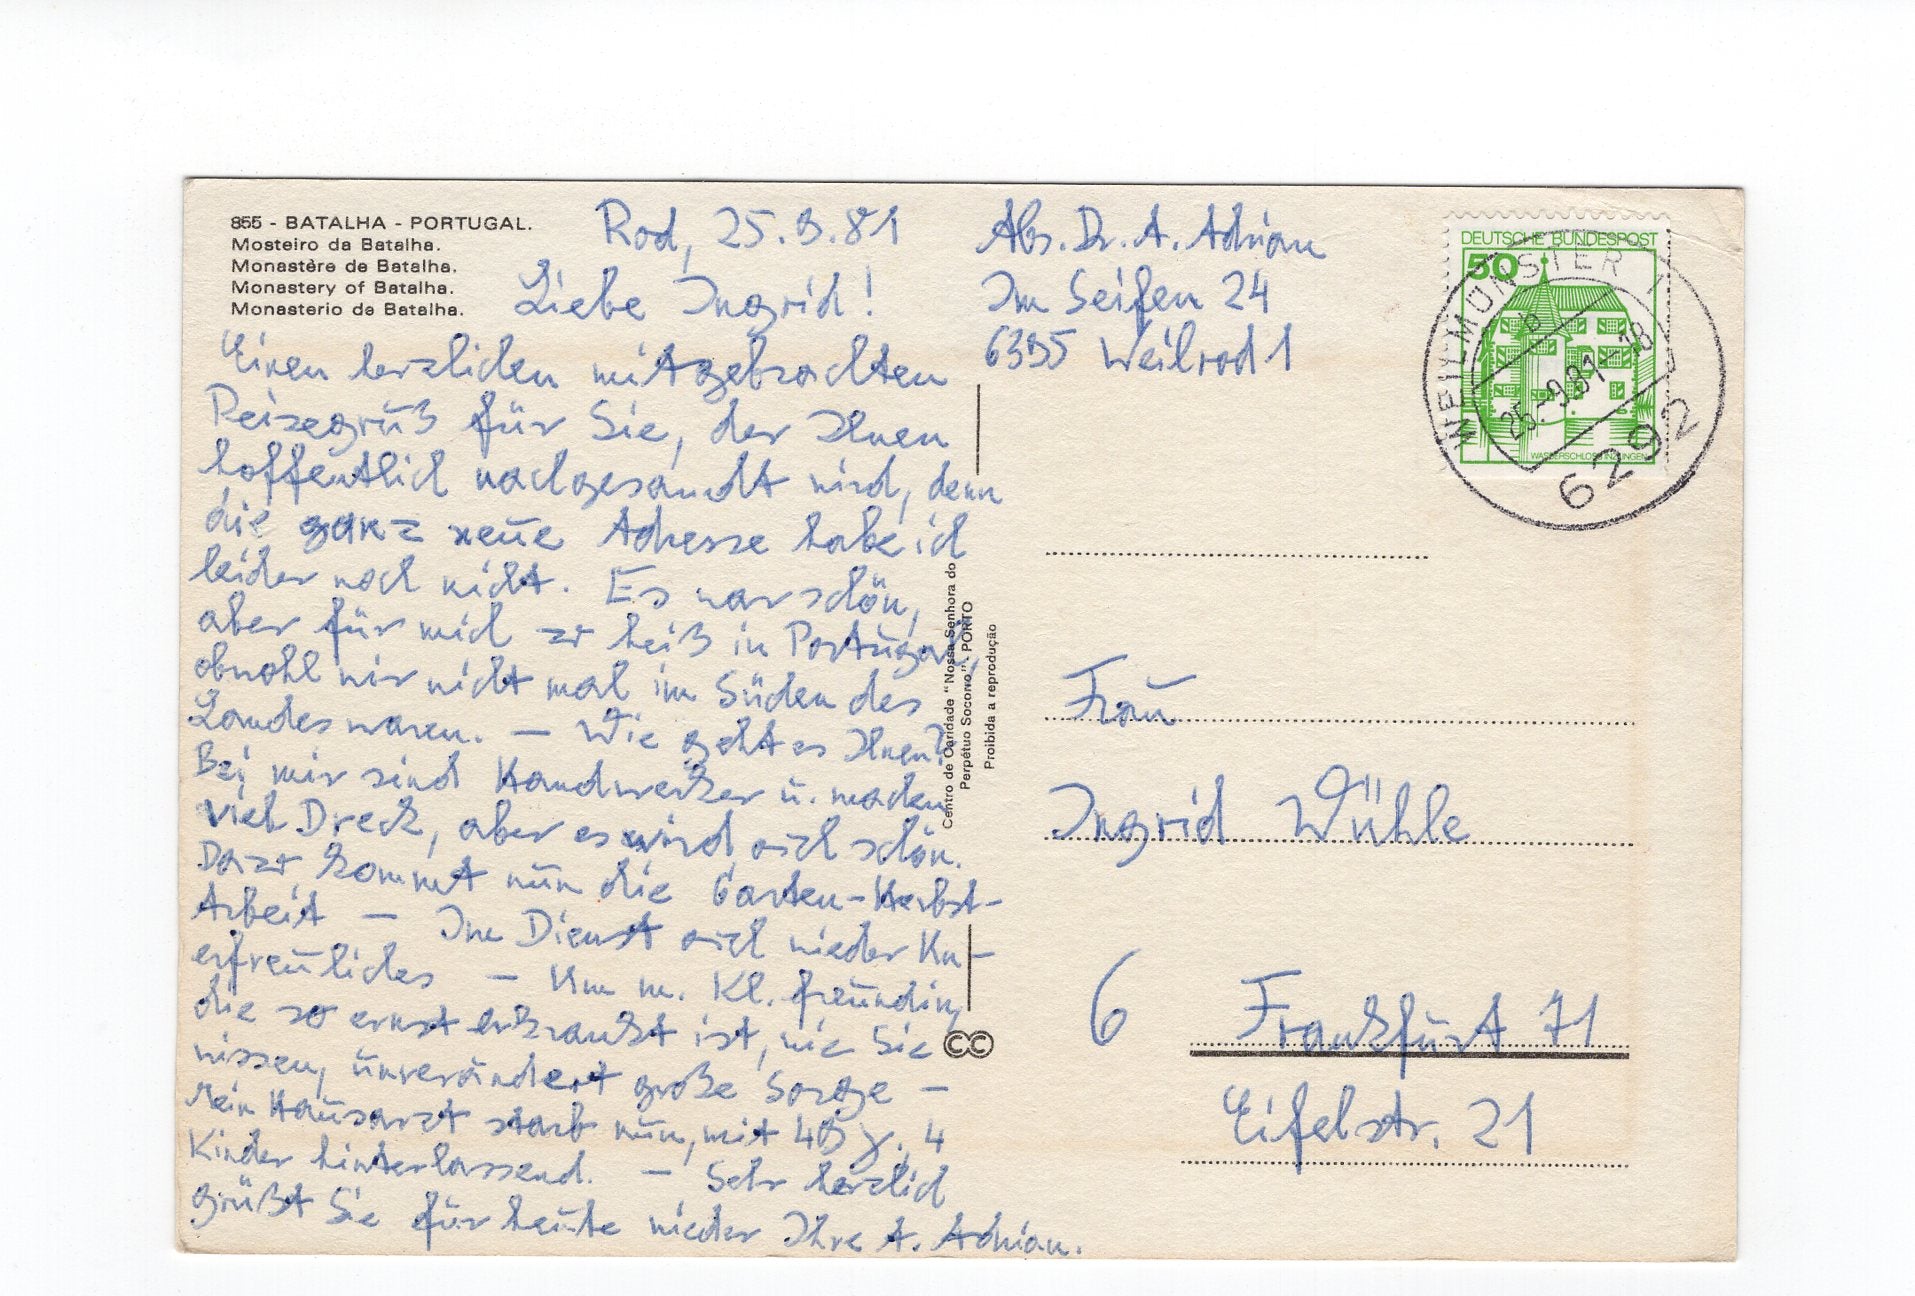 855 - BATALHA - PORTUGAL.
Mosteiro da Batalha.
Monastère de Batalha.
Monastery of Batalha.
Monasterio de Batalha.
Rod, 25.9.81
Liebe Ingrid!
Einen herzlichen mitgebrachten
Reisegruß für Sie, der Ihnen
hoffentlich nachgesandt wird, denn
die ganz neue Adresse habe ich
leider noch nicht. Es war schön,
aber für mich zu heiß in Portugal,
obwohl wir nicht mal im Süden des
Landes waren. — Wie geht es Ihnen?
Bei mir sind Handwerker u. machen
viel Dreck, aber es wird auch schön.
Dazu kommt nun die Garten-Herbst-
Arbeit — Im Dienst auch wieder Un-
erfreuliches — Um m. kl. Freundin,
die so ernst erkrankt ist, wie Sie
wissen, unverändert große Sorge —
Mein Hausarzt starb nun, mit 49 J., 4
Kinder hinterlassend. — Sehr herzlich
grüßt Sie für heute wieder Ihre A. Adrian.
Centro de Caridade "Nossa Senhora do
Perpétuo Socorro" - PORTO
Proibida a reprodução
CC
Abs. Dr. A. Adrian
Im Seifen 24
6395 Weilrod 1
DEUTSCHE BUNDESPOST
50
WASSERSCHLOSS INZLINGEN
WEILMÜNSTER 1
b
25.-9.81-18
6292
Frau
Ingrid Wühle
6 Frankfurt 71
Eifelstr. 21